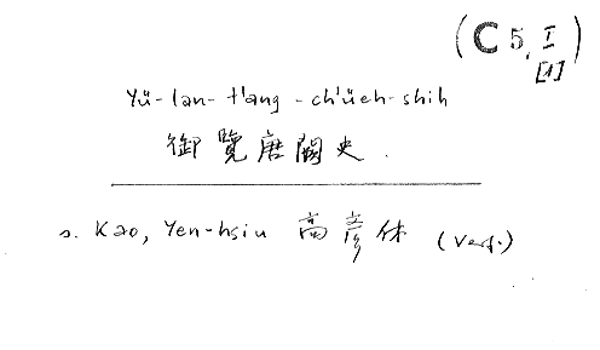 (C 5, I
[1])
Yü-lan-t'ang-ch'üeh-shih
御覽唐闕史.
s. Kao, Yen-hsiu 高彦休 (Verf.)